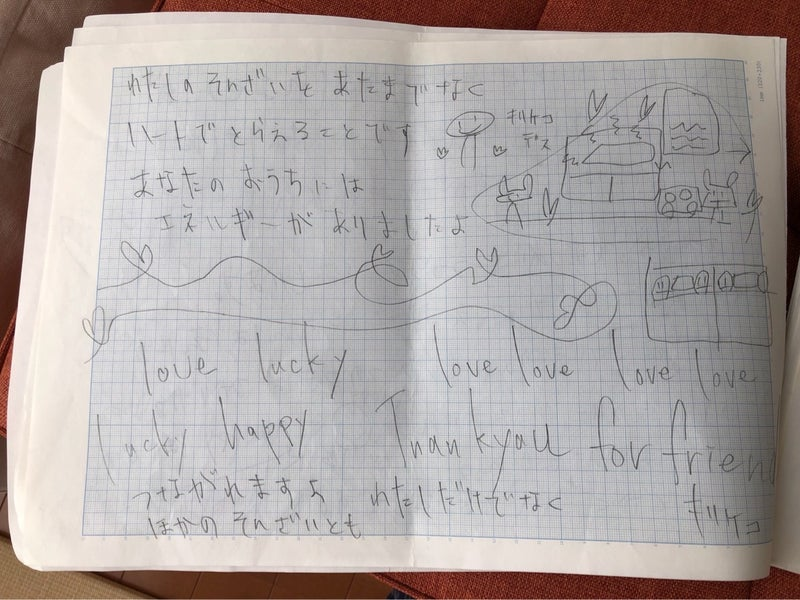 わたしのそんざいを あたまでなく
ハートでとらえることです
あなたのおうちには
エネルギーがありましたよ
キリケコ
デス
love lucky
love love love love
lucky happy
Tnankyau for friend
つながれますよ
ほかのそんざいとも
わたしだけでなく
キリケコ